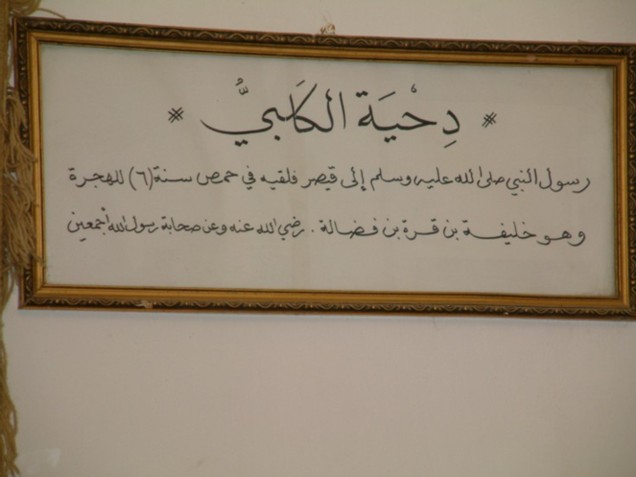 * دِحْيَة الكَلبيُّ *
رسول النبي صلى الله عليه وسلم إلى قيصر فلقيه في حمص سنة (٦) للهجرة
وهو خليفة بن قرة بن فضالة . رضي الله عنه وعن صحابة رسول الله أجمعين